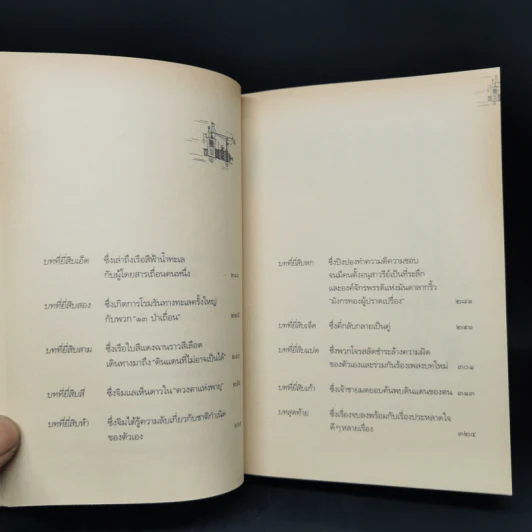 บทที่ยี่สิบเอ็ด ซึ่งเล่าถึงเรือสีฟ้าน้ำทะเล
กับผู้โดยสารเถื่อนคนหนึ่ง
บทที่ยี่สิบสอง ซึ่งเกิดการโรมรันทางทะเลครั้งใหญ่
กับพวก "๑๓ ป่าเถื่อน"
บทที่ยี่สิบสาม ซึ่งเรือใบสีแดงฉานราวสีเลือด
เดินทางมาถึง "ดินแดนที่ไม่อาจเป็นได้"
บทที่ยี่สิบสี่ ซึ่งจิมแลเห็นดาวใน "ดวงตาแห่งพายุ"
บทที่ยี่สิบห้า ซึ่งจิมได้รู้ความลับเกี่ยวกับชาติกำเนิด
ของตัวเอง
บทที่ยี่สิบหก ซึ่งปิงปองทำความดีความชอบ
จนมีคนตั้งอนุสาวรีย์เป็นที่ระลึก
และองค์จักรพรรดิแห่งมันดาลากริ้ว
"มังกรทองผู้ปราดเปรื่อง" ๒๘๑
บทที่ยี่สิบเจ็ด ซึ่งคี่กลับกลายเป็นคู่ ๒๙๑
บทที่ยี่สิบแปด ซึ่งพวกโจรสลัดชำระล้างความผิด
ของตัวเองและร่วมกันร้องเพลงบทใหม่ ๓๐๑
บทที่ยี่สิบเก้า ซึ่งเจ้าชายมดยอบค้นพบดินแดนของตน ๓๑๓
บทสุดท้าย ซึ่งเรื่องจบลงพร้อมกับเรื่องประหลาดใจ
ดีๆหลายเรื่อง ๓๒๕